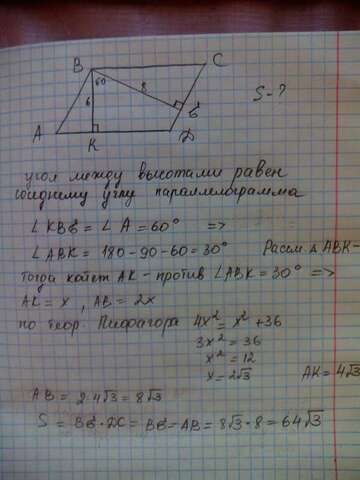 B
C
60
8
6
S-?
A
K
D
угол между высотами равен
соседнему углу параллелограмма
∠KBB = ∠A = 60° =>
∠ABK = 180-90-60=30° Рассм. Δ ABK-
тогда катет AK - против ∠ABK = 30° =>
AK = x , AB = 2x
по теор. Пифагора 4x² = x² + 36
3x² = 36
x² = 12
x = 2√3 AK = 4√3
AB = 2·4√3 = 8√3
S = BB · DC = BB - AB = 8√3 · 8 = 64√3